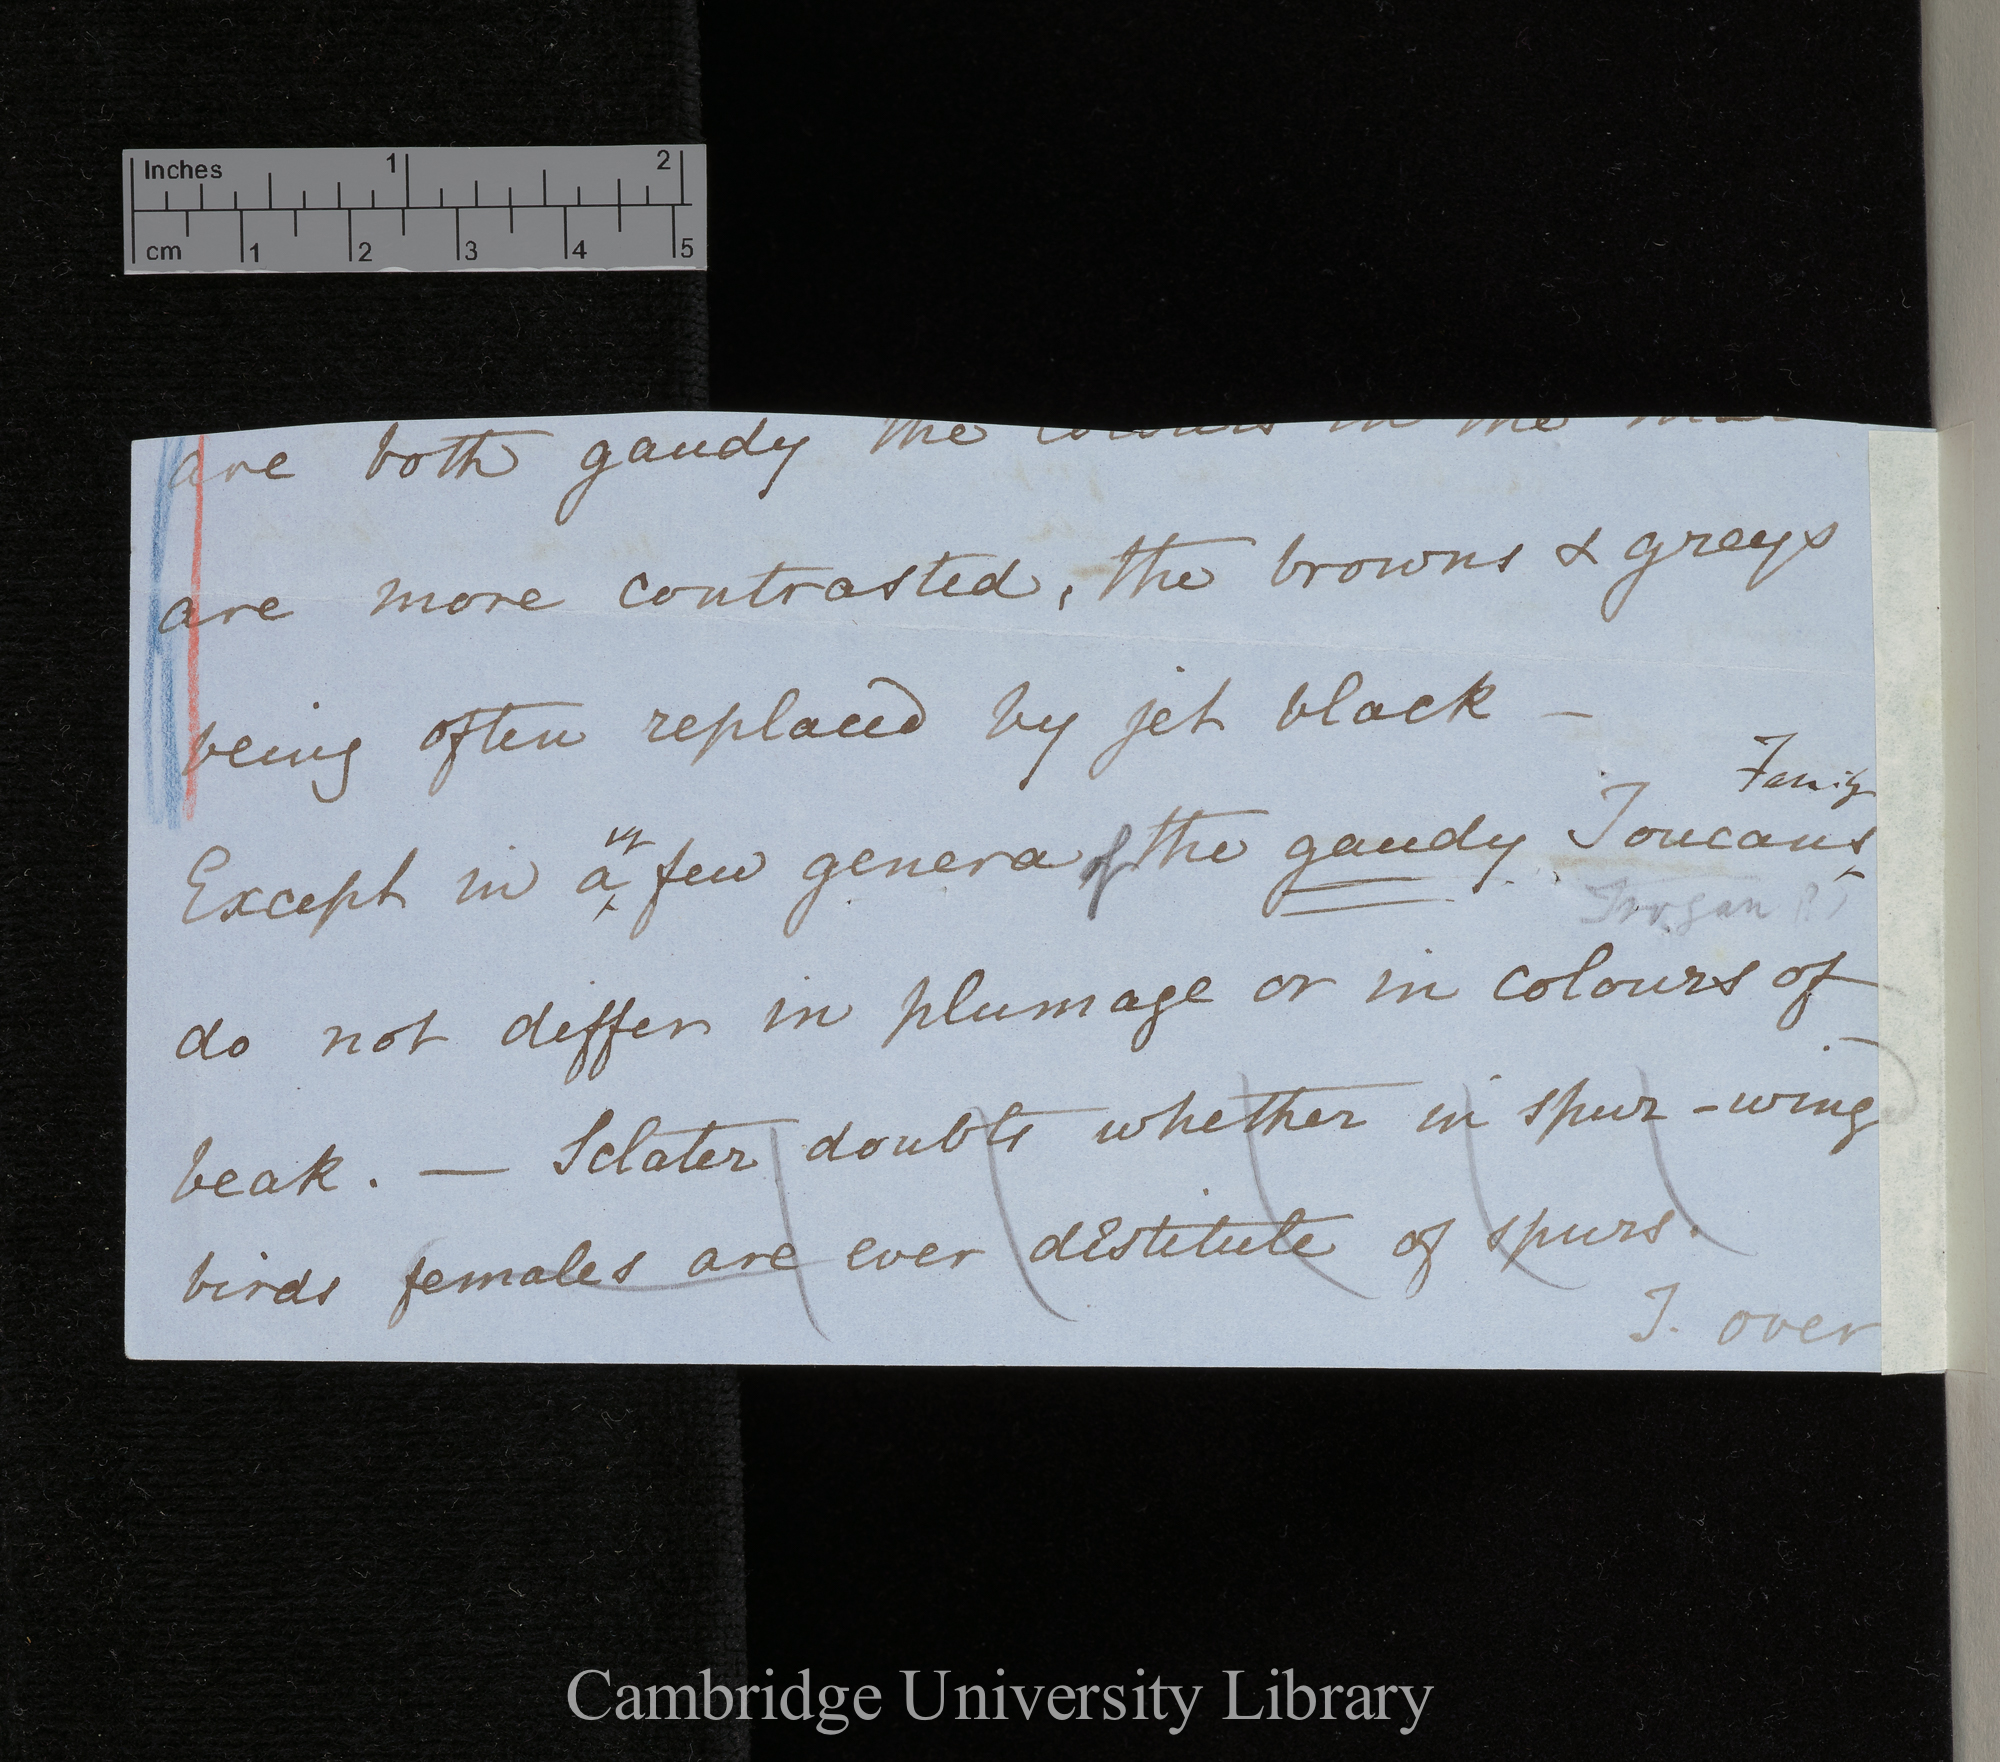 Inches 1 2
cm 1 2 3 4 5
are both gaudy the colours in the
are more contrasted, the browns & greys
being often replaced by jet black —
Family
v
Except in a few genera of the gaudy Toucans
Trogan (?)
do not differ in plumage or in colours of
beak. — Sclater doubts whether in spur-wing
birds females are ever destitute of spurs.
T. over
Cambridge University Library